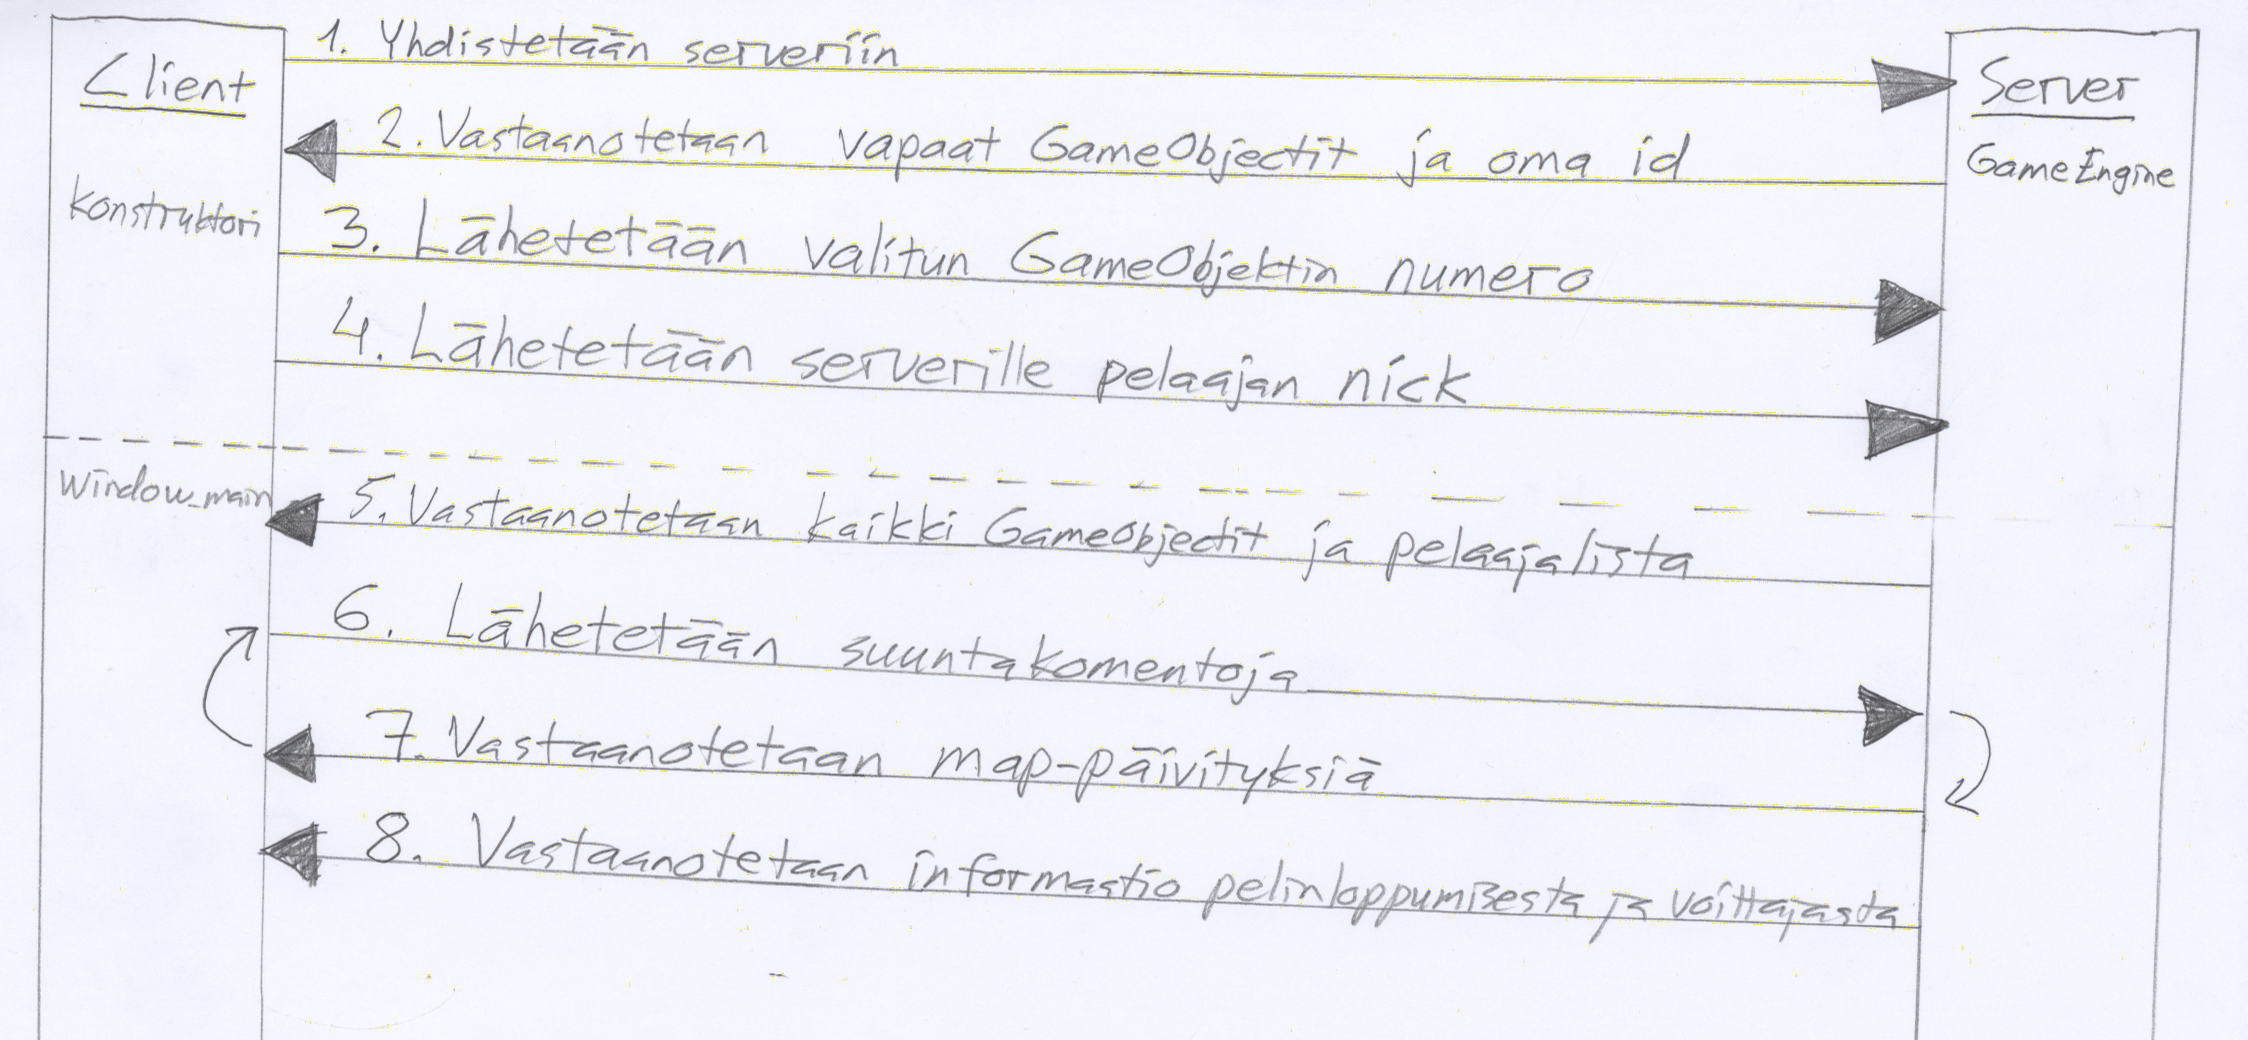 Client
konstruktori
1. Yhdistetään serveriin
2. Vastaanotetaan vapaat GameObjectit ja oma id
3. Lähetetään valitun GameObjektin numero
4. Lähetetään serverille pelaajan nick
Server
GameEngine
window_main
5. Vastaanotetaan kaikki GameObjectit ja pelaajalista
6. Lähetetään suuntakomentoja
7. Vastaanotetaan map-päivityksiä
8. Vastaanotetaan informastio pelinloppumisesta ja voittajasta